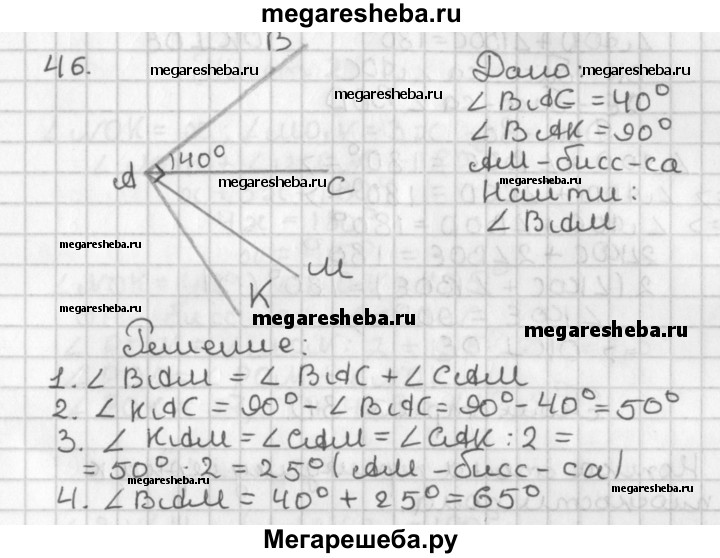 megaresheba.ru
46.
B
megaresheba.ru
Дано: megaresheba.ru
∠ BAC = 40°
∠ BAK = 90°
AM - бисс-са
Найти:
∠ BAM
A
40°
megaresheba.ru
C
megaresheba.ru
M
K
megaresheba.ru
megaresheba.ru
megaresheba.ru
Решение:
1. ∠ BAM = ∠ BAC + ∠ CAM
2. ∠ KAC = 90° - ∠ BAC = 90° - 40° = 50°
3. ∠ KAM = ∠ CAM = ∠ CAK : 2 =
= 50° : 2 = 25° (AM - бисс - са)
4. ∠ BAM = 40° + 25° = 65°
megaresheba.ru
Мегарешеба.ру